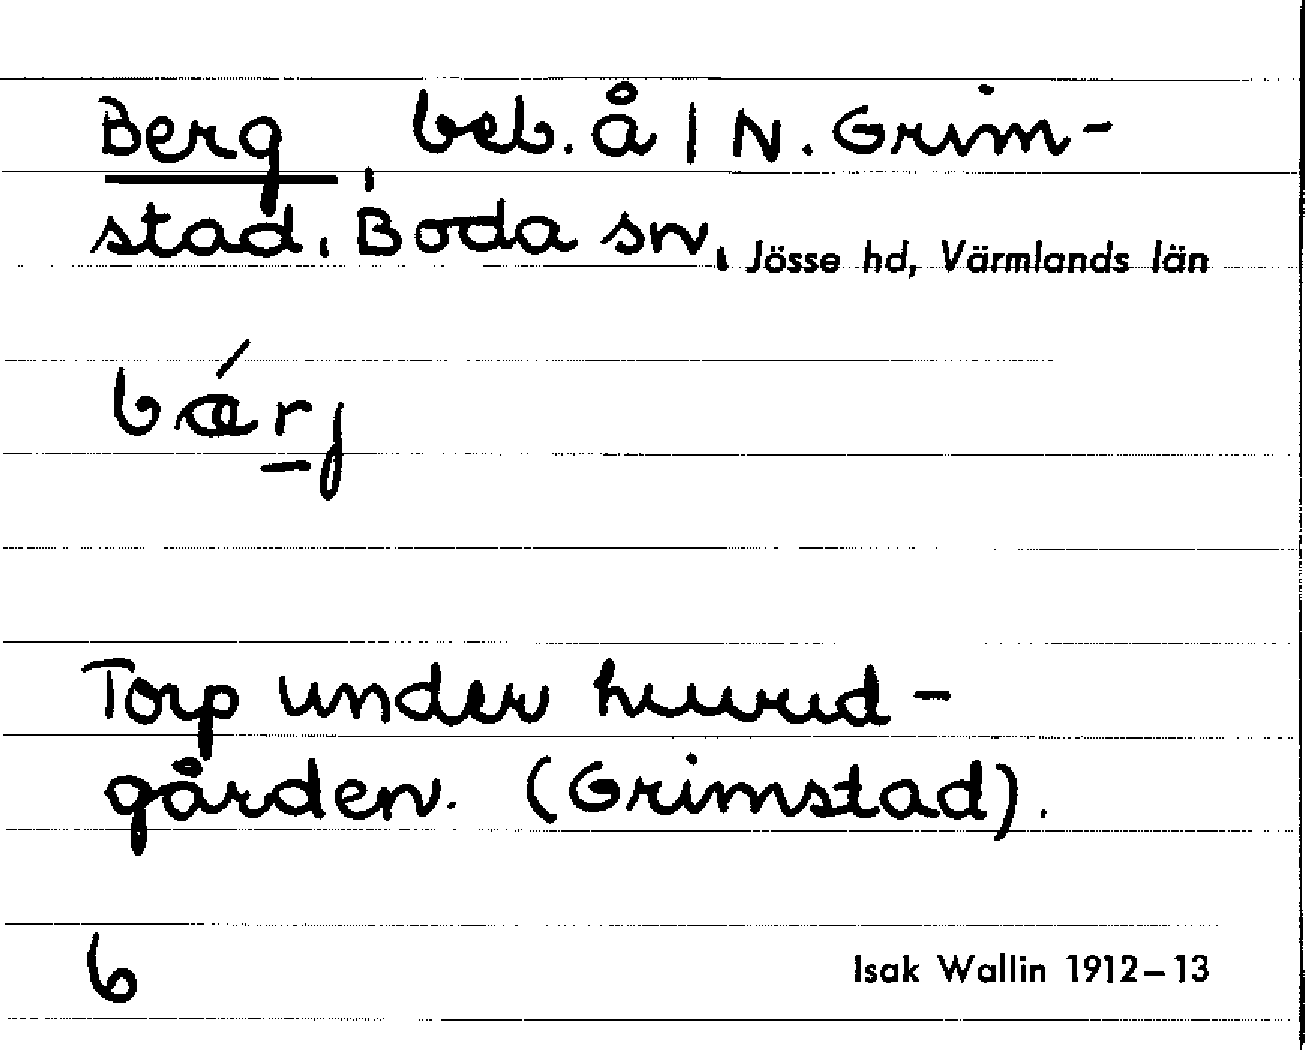 Berg, beb. å 1 N. Grim-
stad. Boda sn, Jösse hd, Värmlands län
bǽr̲j
Torp under huvud-
gården. (Grimstad).
6
Isak Wallin 1912–13